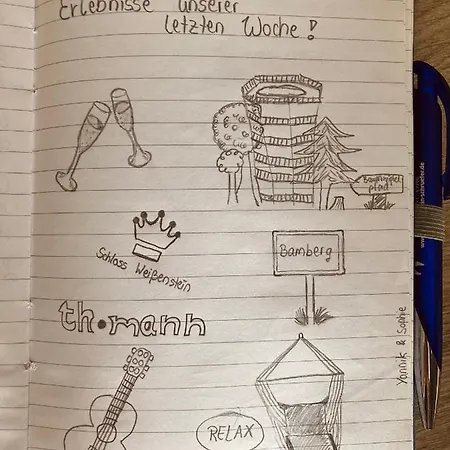 Erlebnisse unserer
letzten Woche!
Baumwipfel
pfad
Schloss Weißenstein
Bamberg
th•mann
RELAX
Yannik & Sophie